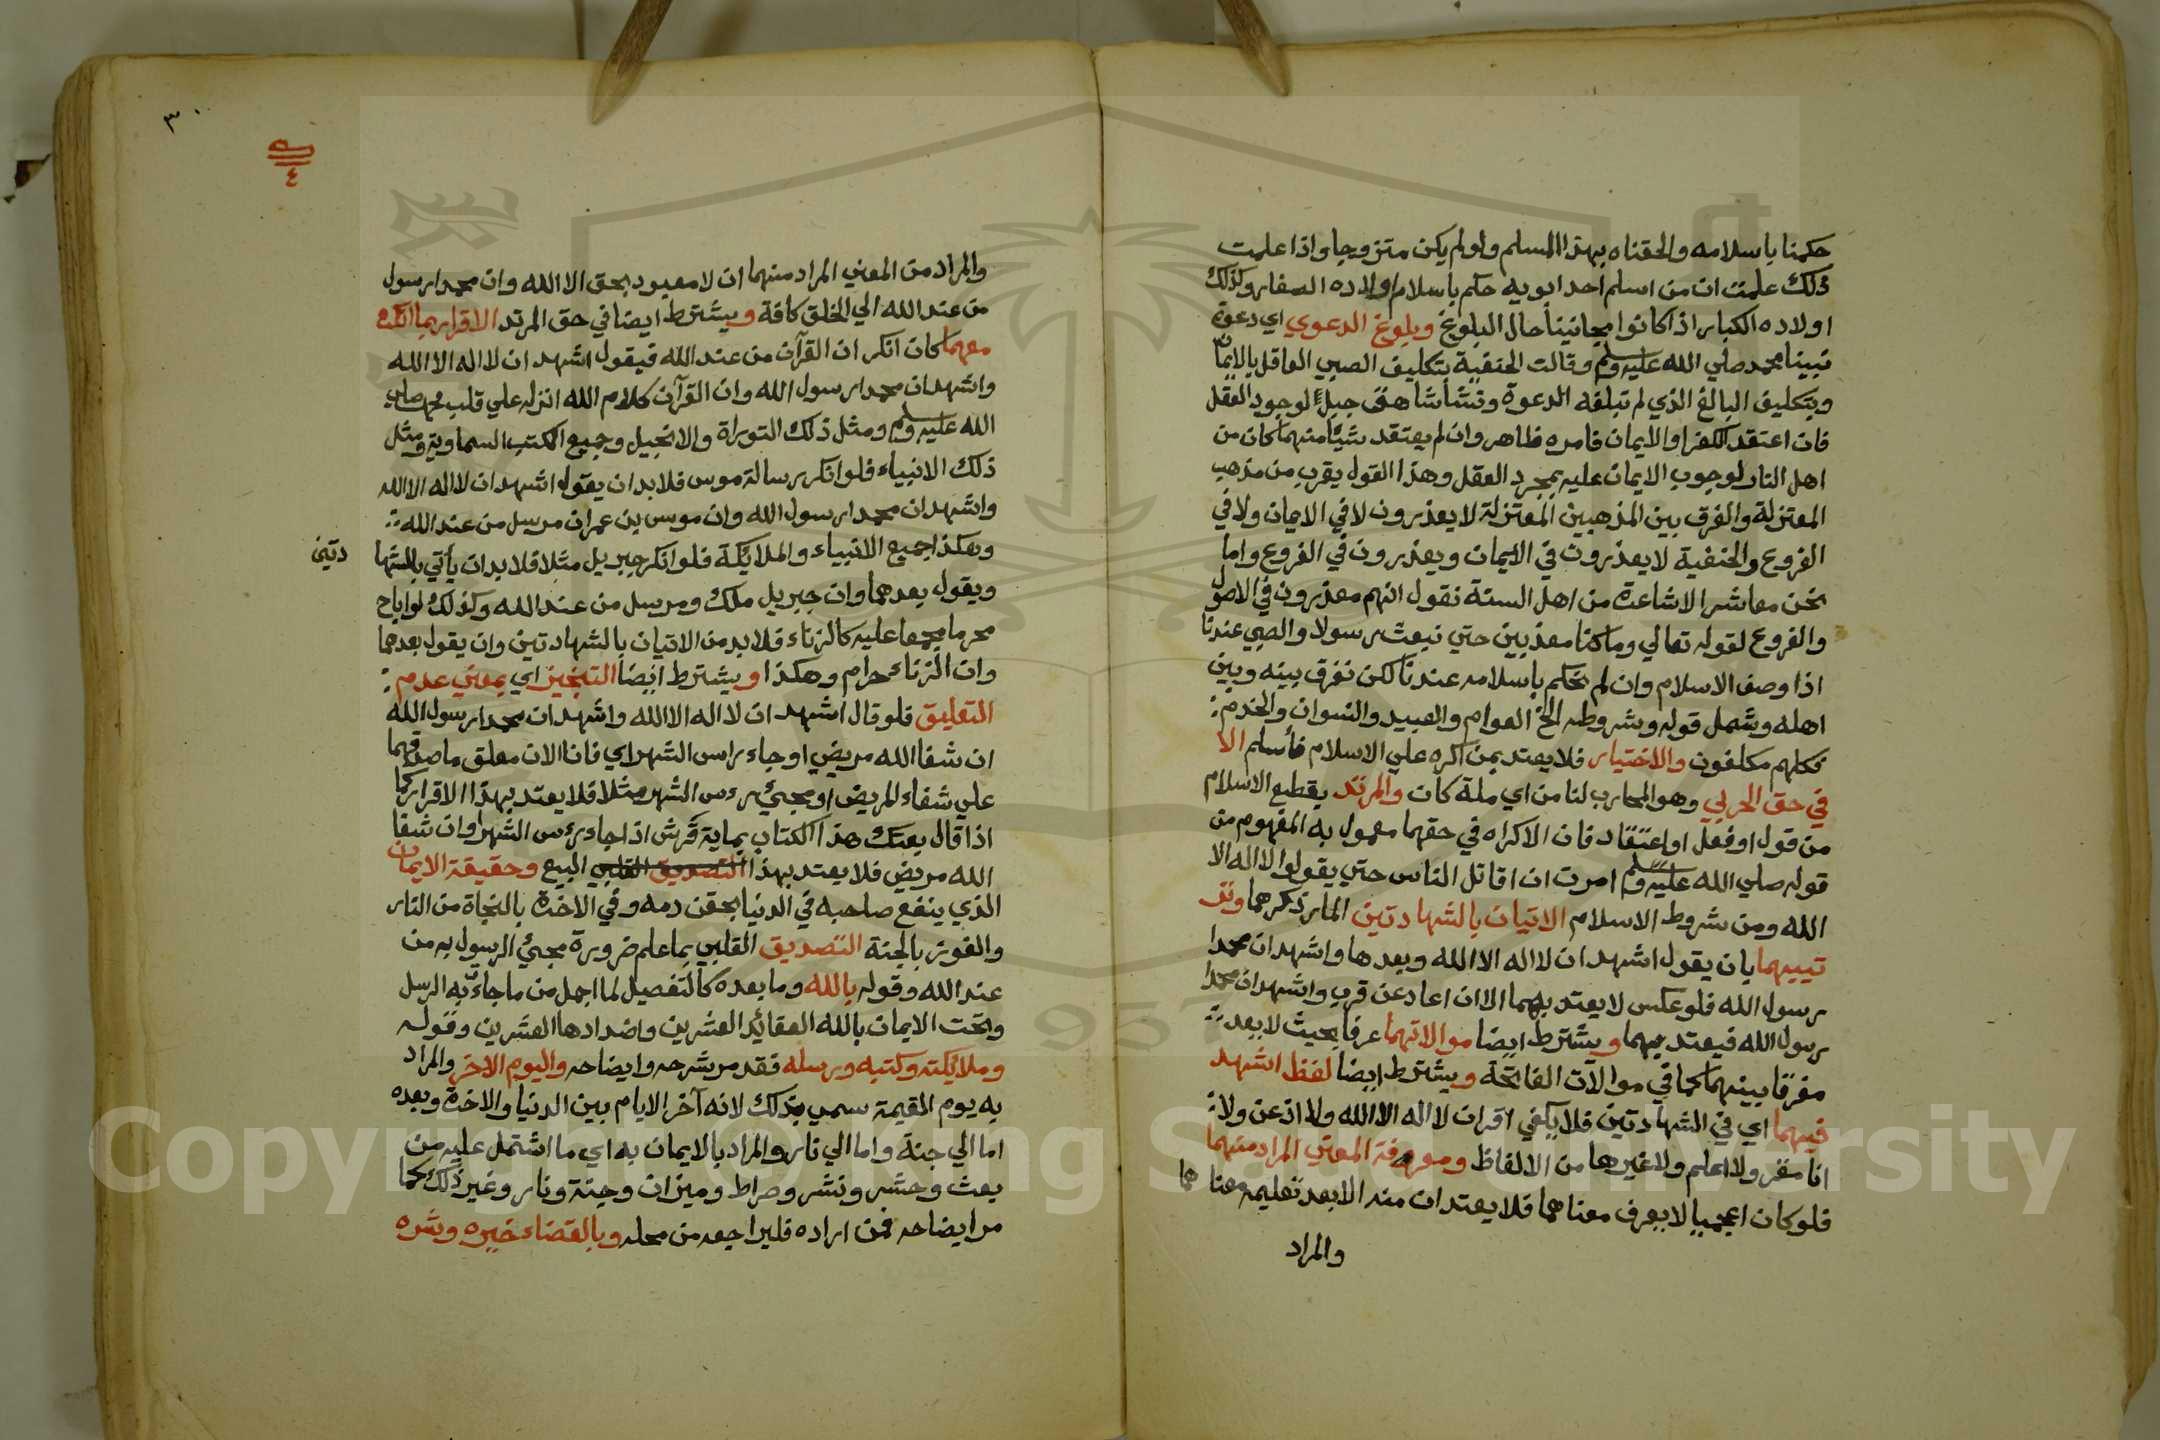 حكمنا باسلامه والحقناه بهذا المسلم ولو لم يكن متزوجا واذا علمت
ذلك علمت ان من اسلم احد ابويه حكم باسلام اولاده الصغار وكذلك
اولاده الكبار اذا كانوا مجانينا حال البلوغ وبلوغ الدعوي اي دعوة
نبينا محمد صلي الله عليه وسلم وقالت الحنفية بتكليف الصبي العاقل بالايمان
وبتكليف البالغ الذي لم تبلغه الدعوة ونشأ شاهق جبل لوجود العقل
فان اعتقد الكفر او الايمان فامره ظاهر وان لم يعتقد شيئا منهما كان من
اهل النار لوجوب الايمان عليه بمجرد العقل وهذا القول يقرب من مذهب
المعتزلة والفرق بين المذهبين المعتزلة لا يعذرون لا في الايمان ولا في
الفروع والحنفية لا يعذرون في الايمان ويعذرون في الفروع واما
نحن معاشر الاشاعرة من اهل السنة نقول انهم معذرون في الاصول
والفروع لقوله تعالي وما كنا معذبين حتي نبعث رسولا والصبي عندنا
اذا وصف الاسلام وان لم نحكم باسلامه عندنا لكن نفرق بينه وبين
اهله وشمل قوله وشروطه الخ العوام والعبيد والنسوان والخدم
فكلهم مكلفون والاختيار فلا يعتد بمن اكره علي الاسلام فأسلم الا
في حق الحربي وهو المحارب لنا من اي ملة كان والمرتد يقطع الاسلام
من قول او فعل او اعتقاد فان الاكراه في حقهما معمول به المفهوم من
قوله صلي الله عليه وسلم امرت ان اقاتل الناس حتي يقولوا لا اله الا
الله ومن شروط الاسلام الاتيان بالشهادتين المار ذكرهما وتر
تيبهما بان يقول اشهد ان لا اله الا الله وبعدها واشهد ان محمدا
رسول الله فلو عكس لا يعتد بهما الا ان اعاد عن قرب واشهد ان محمدا
رسول الله فيعتد بهما ويشترط ايضا موالاتهما عرفا بحيث لا يعد
مفرقا بينهما كما في موالات الفاتحة ويشترط ايضا لفظ اشهد
فيهما اي في الشهادتين فلا يكفي اقر ان لا اله الا الله ولا اذعن ولا
انا مقر ولا اعلم ولا غيرها من الالفاظ ومعرفة المعني المراد منهما
فلو كان اعجميا لا يعرف معناهما فلا يعتد ان منه الا بعد تعليمه معناهما
والمراد
٣٠
٤
والمراد من المعني المراد منهما ان لا معبود بحق الا الله وان محمدا رسول
من عند الله الي الخلق كافة ويشترط ايضا في حق المرتد الاقرار بما انكره
معهما كان انكر ان القرآن من عند الله فيقول اشهد ان لا اله الا الله
واشهد ان محمدا رسول الله وان القرآن كلام الله انزله علي قلب محمد صلي
الله عليه وسلم ومثل ذلك التوراة والانجيل وجميع الكتب السماوية ومثل
ذلك الانبياء فلو انكر رسالة موسي فلا بد ان يقول اشهد ان لا اله الا الله
واشهد ان محمدا رسول الله وان موسي بن عمران مرسل من عند الله
وهكذا جميع الانبياء والملائكة فلو انكر جبريل مثلا فلا بد ان يأتي بالشها
دتين
ويقول بعدهما وان جبريل ملك ومرسل من عند الله وكذلك لو اباح
محرما مجمعا عليه كالزناء فلا بد من الاتيان بالشهادتين وان يقول بعدهما
وان الزناء حرام وهكذا ويشترط ايضا التنجيز اي بمعني عدم
التعليق فلو قال اشهد ان لا اله الا الله واشهد ان محمدا رسول الله
ان شفا الله مريضي او جاء راس الشهر اي فانا الان معلق ما صدقهما
علي شفاء المريض او مجيئ رءس الشهر مثلا فلا يعتد بهذا الاقرار كما
اذا قال بعتك هذا الكتاب بماية قرش اذا جاء رءس الشهر او ان شفا
الله مريضي فلا يعتد بهذا التصديق القلبي البيع وحقيقة الايمان
الذي ينفع صاحبه في الدنيا بحقن دمه وفي الاخرة بالنجاة من النار
والفوز بالجنة التصديق القلبي بما علم ضرورة مجيئ الرسول به من
عند الله وقوله بالله وما بعده كالتفصيل لما اجمل من ما جاء به الرسل
وتحت الايمان بالله العقائد العشرين واضدادها العشرين وقوله
وملائكته وكتبه ورسله فقد مر شرحه وايضاحه واليوم الاخر والمراد
به يوم القيمة سمي بذلك لانه آخر الايام بين الدنيا والاخرة وبعده
اما الي جنة واما الي نار والمراد بالايمان به اي ما اشتمل عليه من
بعث وحشر ونشر وصراط وميزان وجنة ونار وغير ذلك كما
مر ايضاحه فمن اراده فليراجعه من محله وبالقضاء خيره وشره
1957
Copyright © King Saud University